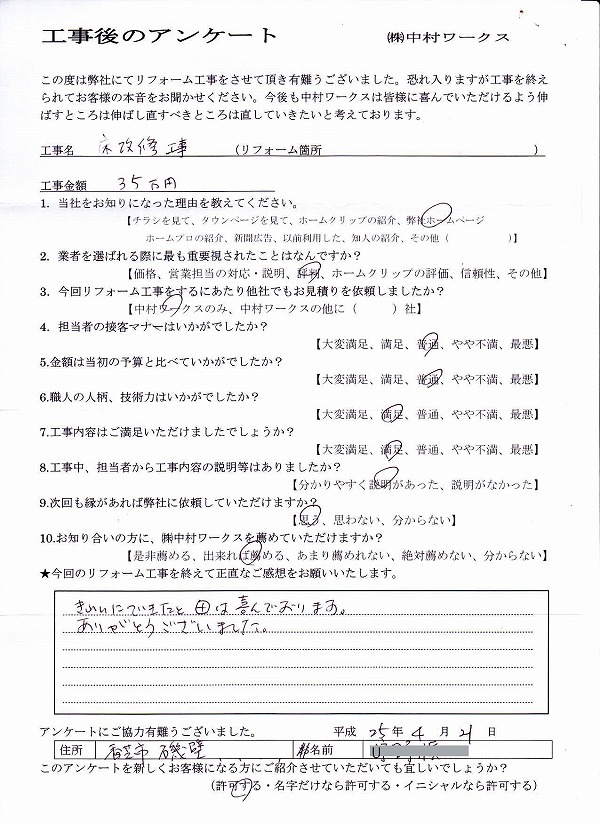 工事後のアンケート ㈱中村ワークス
この度は弊社にてリフォーム工事をさせて頂き有難うございました。恐れ入りますが工事を終え
られてお客様の本音をお聞かせください。今後も中村ワークスは皆様に喜んでいただけるよう伸
ばすところは伸ばし直すべきところは直していきたいと考えております。
工事名 床改修工事 (リフォーム箇所 )
工事金額 35万円
1. 当社をお知りになった理由を教えてください。
【チラシを見て、タウンページを見て、ホームクリップの紹介、弊社ホームページ
ホームプロの紹介、新聞広告、以前利用した、知人の紹介、その他( )】
2. 業者を選ばれる際に最も重要視されたことはなんですか?
【価格、営業担当の対応・説明、評判、ホームクリップの評価、信頼性、その他】
3. 今回リフォーム工事をするにあたり他社でもお見積りを依頼しましたか?
【中村ワークスのみ、中村ワークスの他に( )社】
4. 担当者の接客マナーはいかがでしたか?
【大変満足、満足、普通、やや不満、最悪】
5.金額は当初の予算と比べていかがでしたか?
【大変満足、満足、普通、やや不満、最悪】
6.職人の人柄、技術力はいかがでしたか?
【大変満足、満足、普通、やや不満、最悪】
7.工事内容はご満足いただけましたでしょうか?
【大変満足、満足、普通、やや不満、最悪】
8.工事中、担当者から工事内容の説明等はありましたか?
【分かりやすく説明があった、説明がなかった】
9.次回も縁があれば弊社に依頼していただけますか?
【思う、思わない、分からない】
10.お知り合いの方に、㈱中村ワークスを薦めていただけますか?
【是非薦める、出来れば薦める、あまり薦めれない、絶対薦めない、分からない】
★今回のリフォーム工事を終えて正直なご感想をお願いいたします。
きれいにできたと 母は喜んでおります。
ありがとうございました。
アンケートにご協力有難うございました。 平成 25 年 4 月 21 日
住所 香芝市 磯壁 お名前
このアンケートを新しくお客様になる方にご紹介させていただいても宜しいでしょうか?
(許可する・名字だけなら許可する・イニシャルなら許可する)